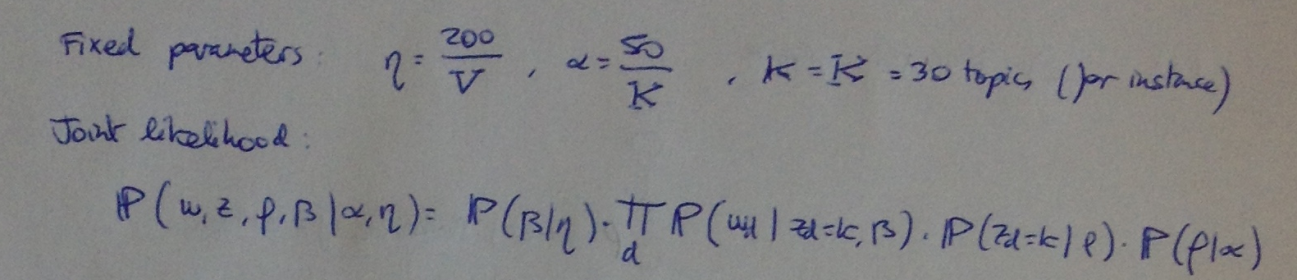 Fixed parameters: η = 200/V, α = 50/K, K = K = 30 topics (for instance)
Joint likelihood:
ℙ(w, z, ρ, β | α, η) = ℙ(β|η) · ∏_d ℙ(w_d | z_d=k, β) · ℙ(z_d=k | ρ) · ℙ(ρ|α)